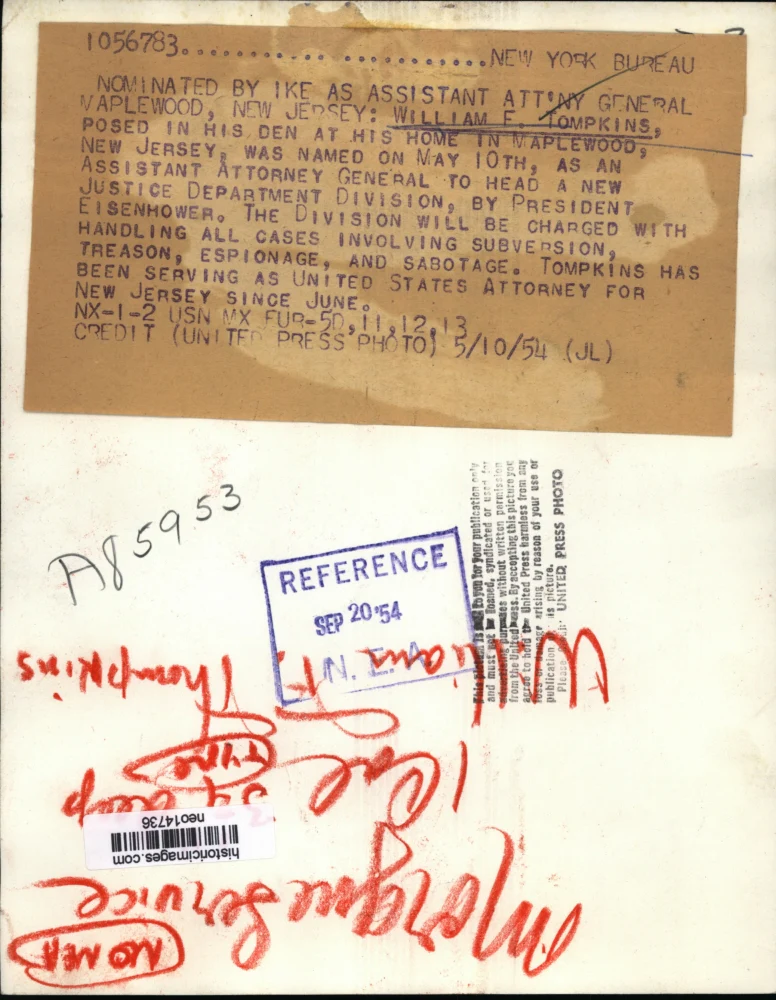 1056783.......................NEW YORK BUREAU
NOMINATED BY IKE AS ASSISTANT ATT'NY GENERAL
MAPLEWOOD, NEW JERSEY: WILLIAM F. TOMPKINS,
POSED IN HIS DEN AT HIS HOME IN MAPLEWOOD,
NEW JERSEY, WAS NAMED ON MAY 10TH, AS AN
ASSISTANT ATTORNEY GENERAL TO HEAD A NEW
JUSTICE DEPARTMENT DIVISION, BY PRESIDENT
EISENHOWER. THE DIVISION WILL BE CHARGED WITH
HANDLING ALL CASES INVOLVING SUBVERSION,
TREASON, ESPIONAGE, AND SABOTAGE. TOMPKINS HAS
BEEN SERVING AS UNITED STATES ATTORNEY FOR
NEW JERSEY SINCE JUNE.
NX-1-2 USN MX EUR-50,11,12,13
CREDIT (UNITED PRESS PHOTO) 5/10/54 (JL)
A85953
REFERENCE
SEP 20 '54
N. E. A.
This picture is to you for your publication only
and must not be loaned, syndicated or used for
advertising purposes without written permission
from the United Press. By accepting this picture you
agree to hold the United Press harmless from any
loss or damage arising by reason of your use or
publication is picture.
Please UNITED PRESS PHOTO
NO NEA
Morgue Service
1 Col
TYPE
deep
William F.
Thompkins
historicimages.com
neo14736